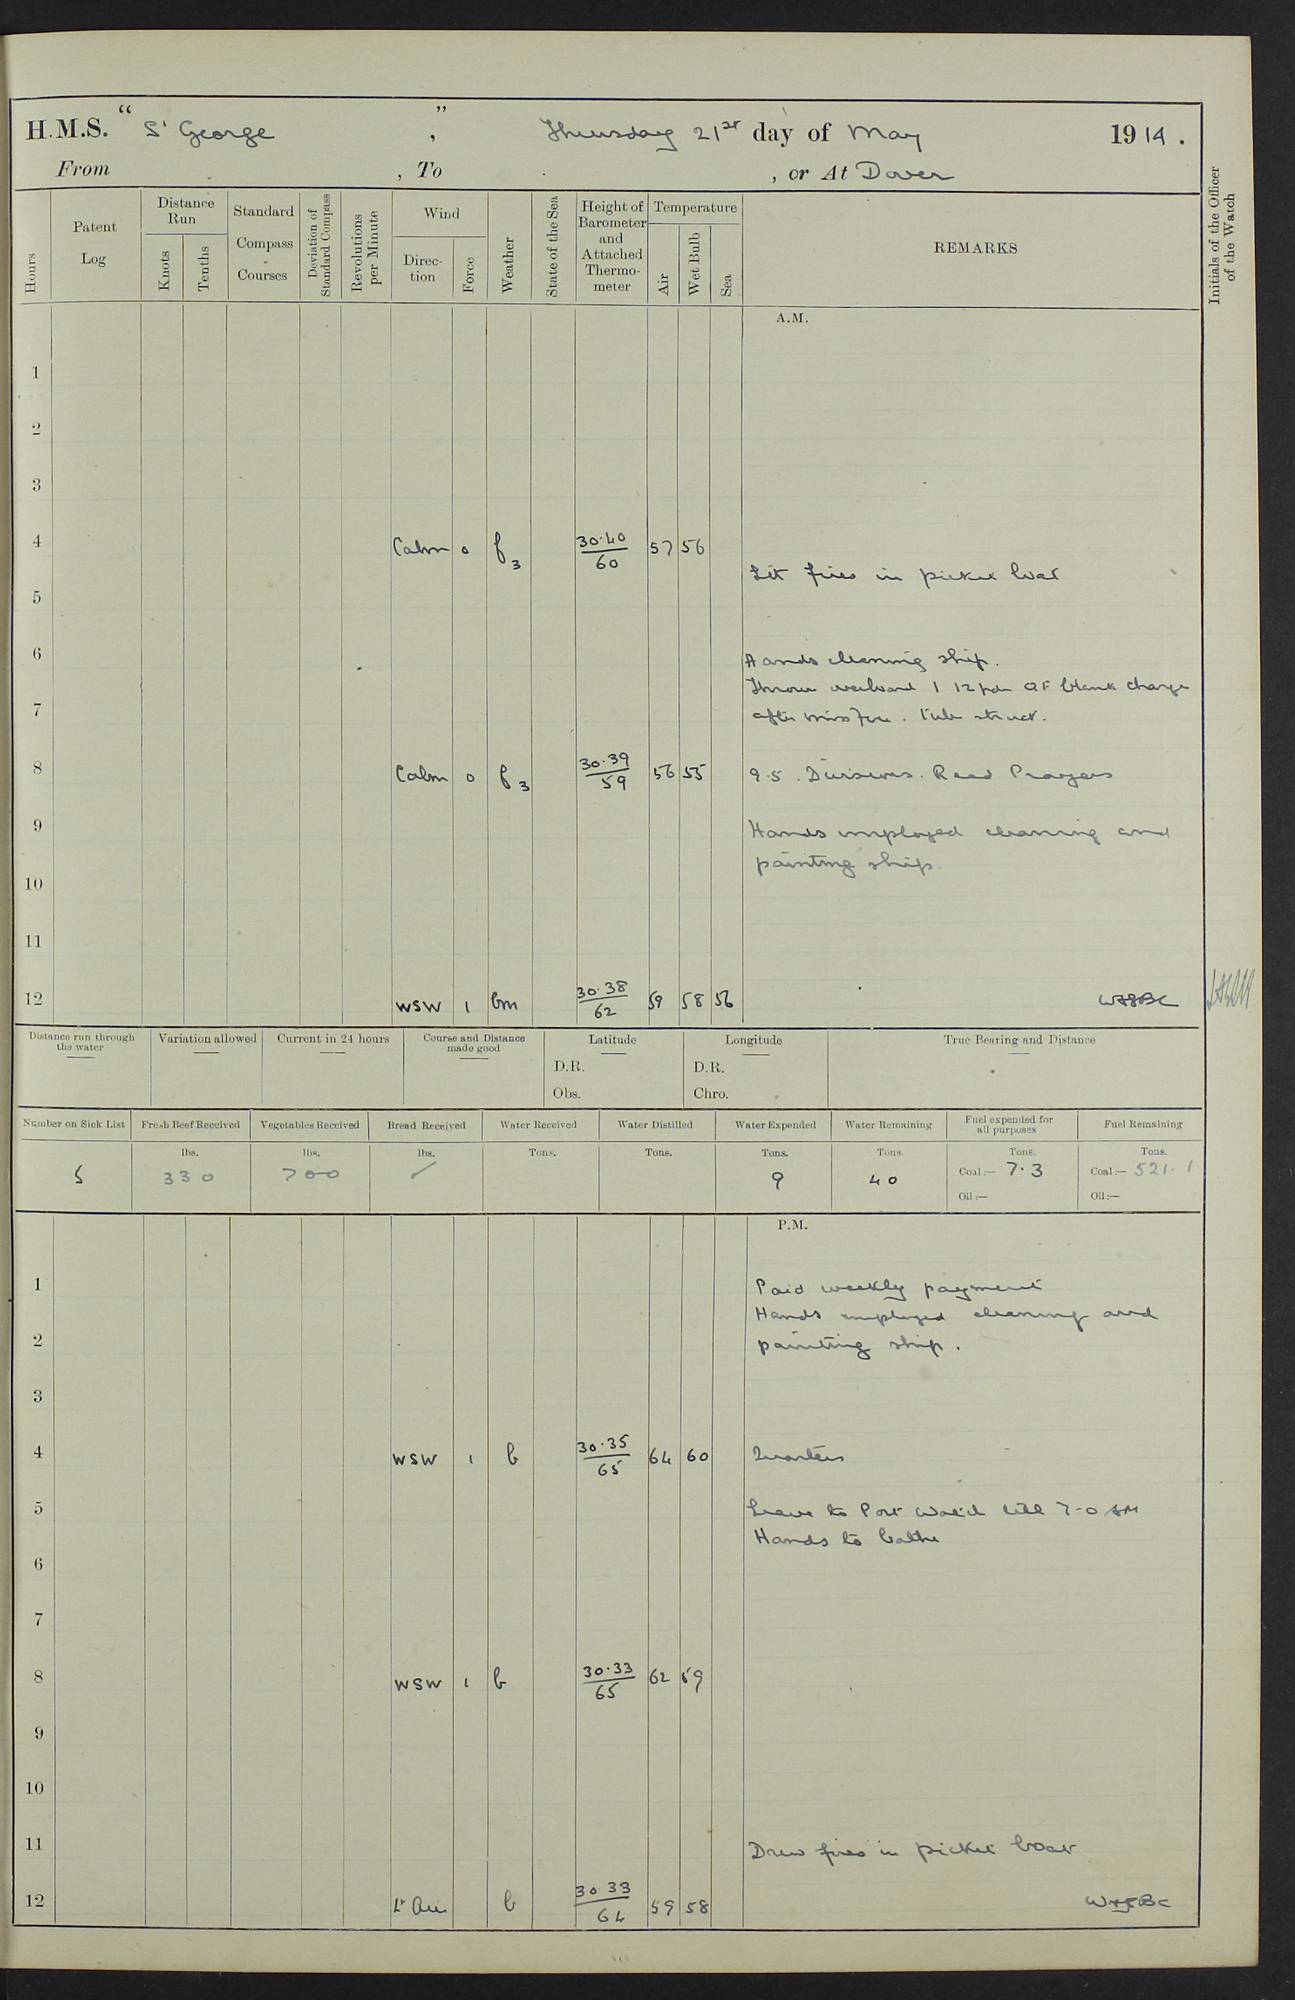 H.M.S. "St George", Thursday 21st day of May 1914.
From , To , or At Dover
Hours
Patent Log
Distance Run
Knots
Tenths
Standard Compass Courses
Deviation of Standard Compass
Revolutions per Minute
Wind
Direction
Force
Weather
State of the Sea
Height of Barometer and Attached Thermometer
Temperature
Air
Wet Bulb
Sea
REMARKS
Initials of the Officer of the Watch
A.M.
1
2
3
4 Calm 0 f3 30.40/60 57 56
Lit fires in picket boat
5
6 Hands cleaning ship.
Threw overboard 1 12 pdr QF blank charge
7 after miss fire. Tube struck.
8 Calm 0 f3 30.39/59 56 55 9.5. Divisions. Read Prayers
9 Hands employed cleaning and
painting ship.
10
11
12 WSW 1 bm 30.38/62 59 58 56
Distance run through the water
Variation allowed
Current in 24 hours
Course and Distance made good
Latitude
D.R.
Obs.
Longitude
D.R.
Chro.
True Bearing and Distance
Number on Sick List
Fresh Beef Received
Vegetables Received
Bread Received
Water Received
Water Distilled
Water Expended
Water Remaining
Fuel expended for all purposes
Fuel Remaining
lbs. lbs. lbs. Tons. Tons. Tons. Tons. Tons. Tons.
5 330 700 ✓ 9 40 Coal:— 7.3 Coal:— 521.1
Oil:— Oil:—
P.M.
1 Paid weekly payment
Hands employed cleaning and
2 painting ship.
3
4 WSW 1 b 30.35/65 64 60 Quarters
5 Leave to Port Watch till 7-0 AM
Hands to bathe
6
7
8 WSW 1 b 30.33/65 62 59
9
10
11 Drew fires in picket boat
12 Lt Airs b 30.33/64 59 58